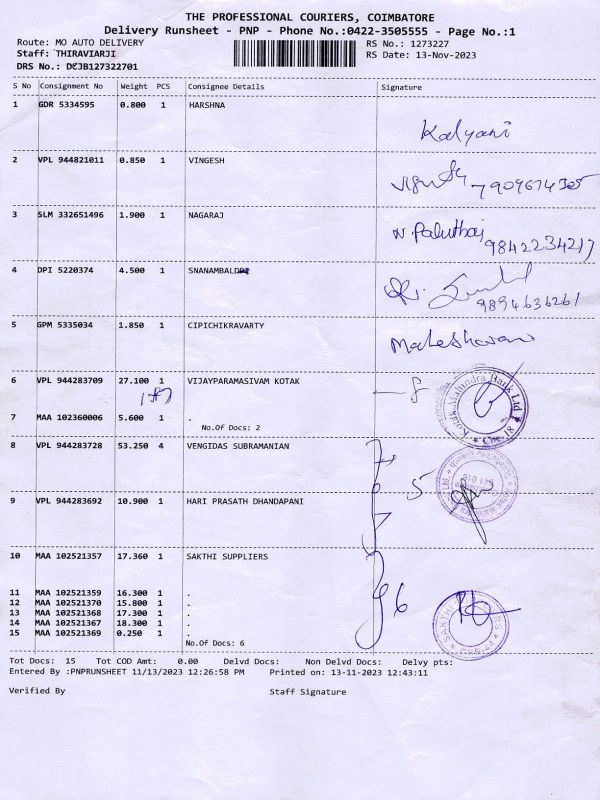 THE PROFESSIONAL COURIERS, COIMBATORE
Delivery Runsheet - PNP - Phone No.:0422-3505555 - Page No.:1
Route: MO AUTO DELIVERY RS No.: 1273227
Staff: THIRAVIARJI RS Date: 13-Nov-2023
DRS No.: DEJB127322701
S No Consignment No Weight PCS Consignee Details Signature
1 GDR 5334595 0.800 1 HARSHNA
Kalyani
2 VPL 944821011 0.850 1 VINGESH
3 SLM 332651496 1.900 1 NAGARAJ N. Paluthai
9842234217
4 DPI 5220374 4.500 1 SNANAMBAL
9894636261
5 GPM 5335034 1.850 1 CIPICHIKRAVARTY
Maheshwaran
6 VPL 944283709 27.100 1 VIJAYPARAMASIVAM KOTAK
Kotak Mahindra Bank Ltd
7 MAA 102360006 5.600 1 .
No.Of Docs: 2
8 VPL 944283728 53.250 4 VENGIDAS SUBRAMANIAN
5
9 VPL 944283692 10.900 1 HARI PRASATH DHANDAPANI
10 MAA 102521357 17.360 1 SAKTHI SUPPLIERS
11 MAA 102521359 16.300 1 .
12 MAA 102521370 15.800 1 .
13 MAA 102521368 17.300 1 .
14 MAA 102521367 18.300 1 .
15 MAA 102521369 0.250 1 .
No.Of Docs: 6
6
Tot Docs: 15 Tot COD Amt: 0.00 Delvd Docs: Non Delvd Docs: Delvy pts:
Entered By :PNPRUNSHEET 11/13/2023 12:26:58 PM Printed on: 13-11-2023 12:43:11
Verified By Staff Signature